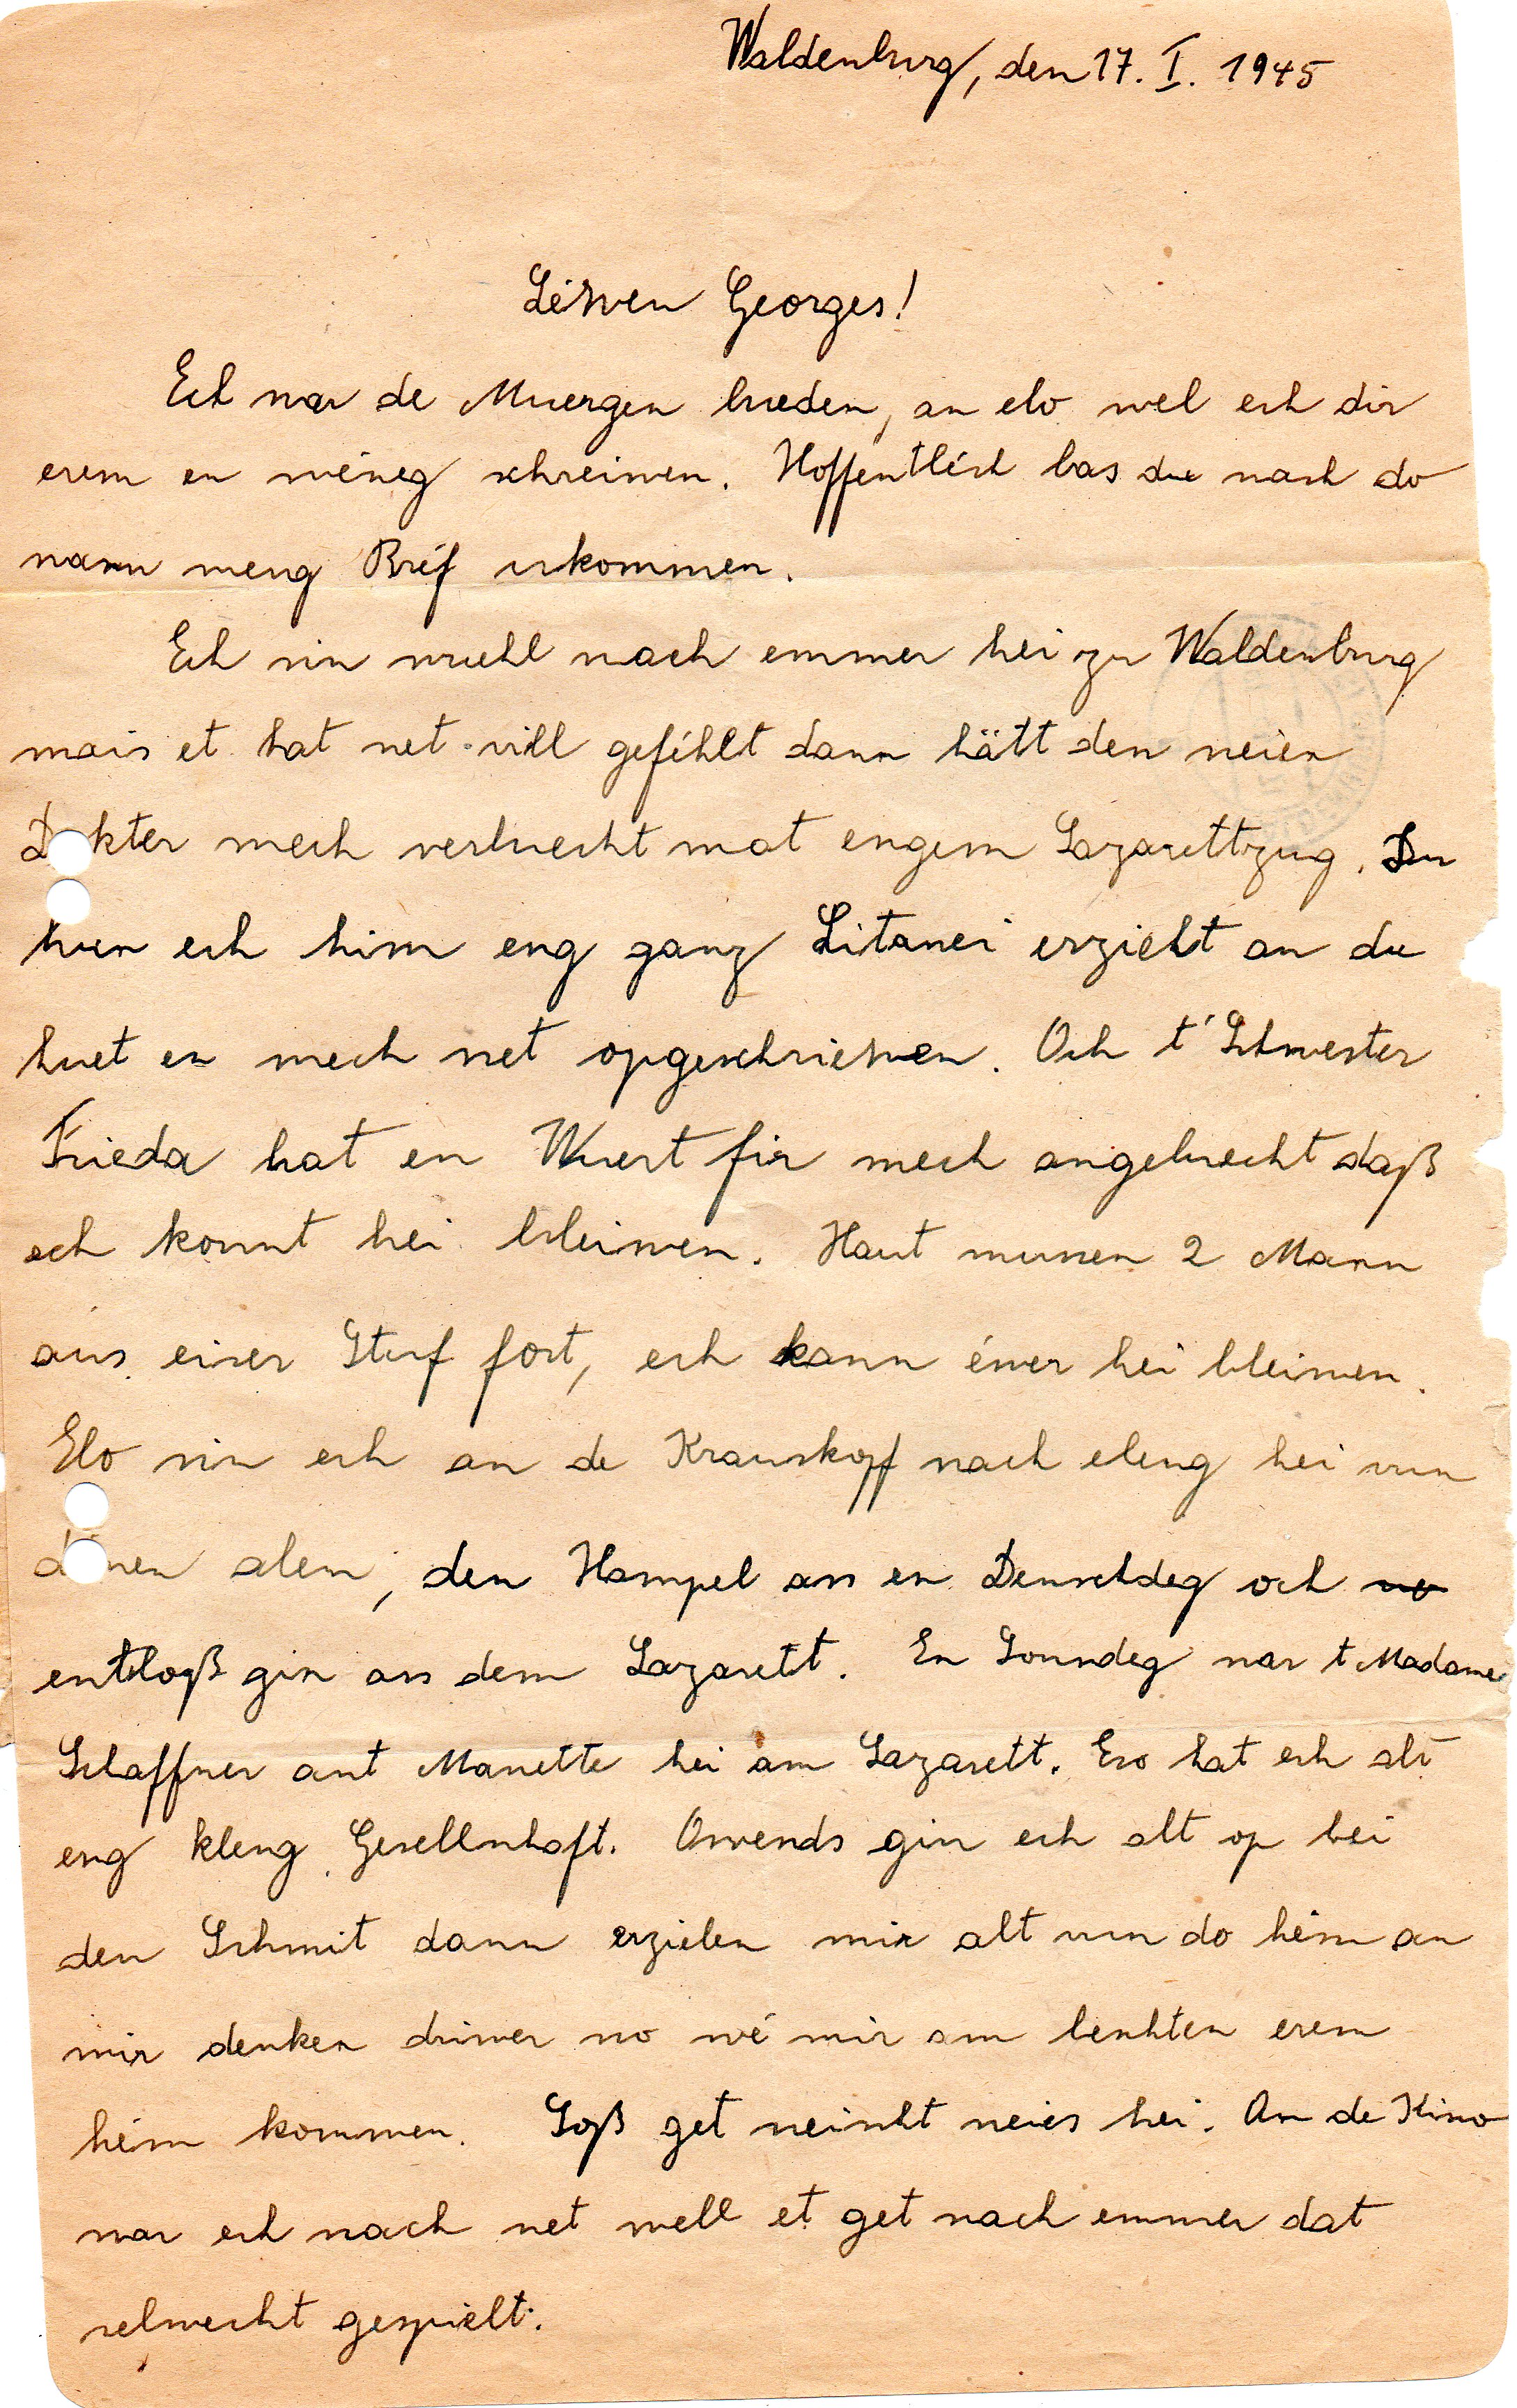 Waldenburg, den 17. I. 1945
Léiwen Georges!
Ech war de Muergen bueden, an elo wel ech dir
erem en wéneg schreiwen. Hoffentléch has du nach do
wann meng Bréf ukommen.
Ech sin wuehl nach emmer hei zu Waldenburg
mais et hat net vill geféhlt dann hätt den neien
Dokter mech verluecht mat engem Lazarettzug. Du
huen ech him eng ganz Litanei erzielt an du
huet en mech net opgeschriewen. Och t' Schwester
Frieda hat en Wuert fir mech angeluecht daß
ech konnt hei bleiwen. Haut mussen 2 Mann
aus eiser Stuf fort, ech kann éwer hei bleiwen.
Elo sin ech an de Krauskopf nach eleng hei vun
dénen alen, den Hampel ass en Denschdeg och
entloß gin aus dem Lazarett. En Sonndeg war t Madame
Schaffner ant Manette hei am Lazarett. Eso hat ech alt
eng kleng Gesellschaft. Owends gin ech alt op bei
den Schmit dann erzielen mir alt vun do hém an
mir denken driwer no wé mir am beschten erem
hém kommen. Soß get neischt neies hei. An de Kino
war ech nach net well et get nach emmer dat
selwecht gespielt.